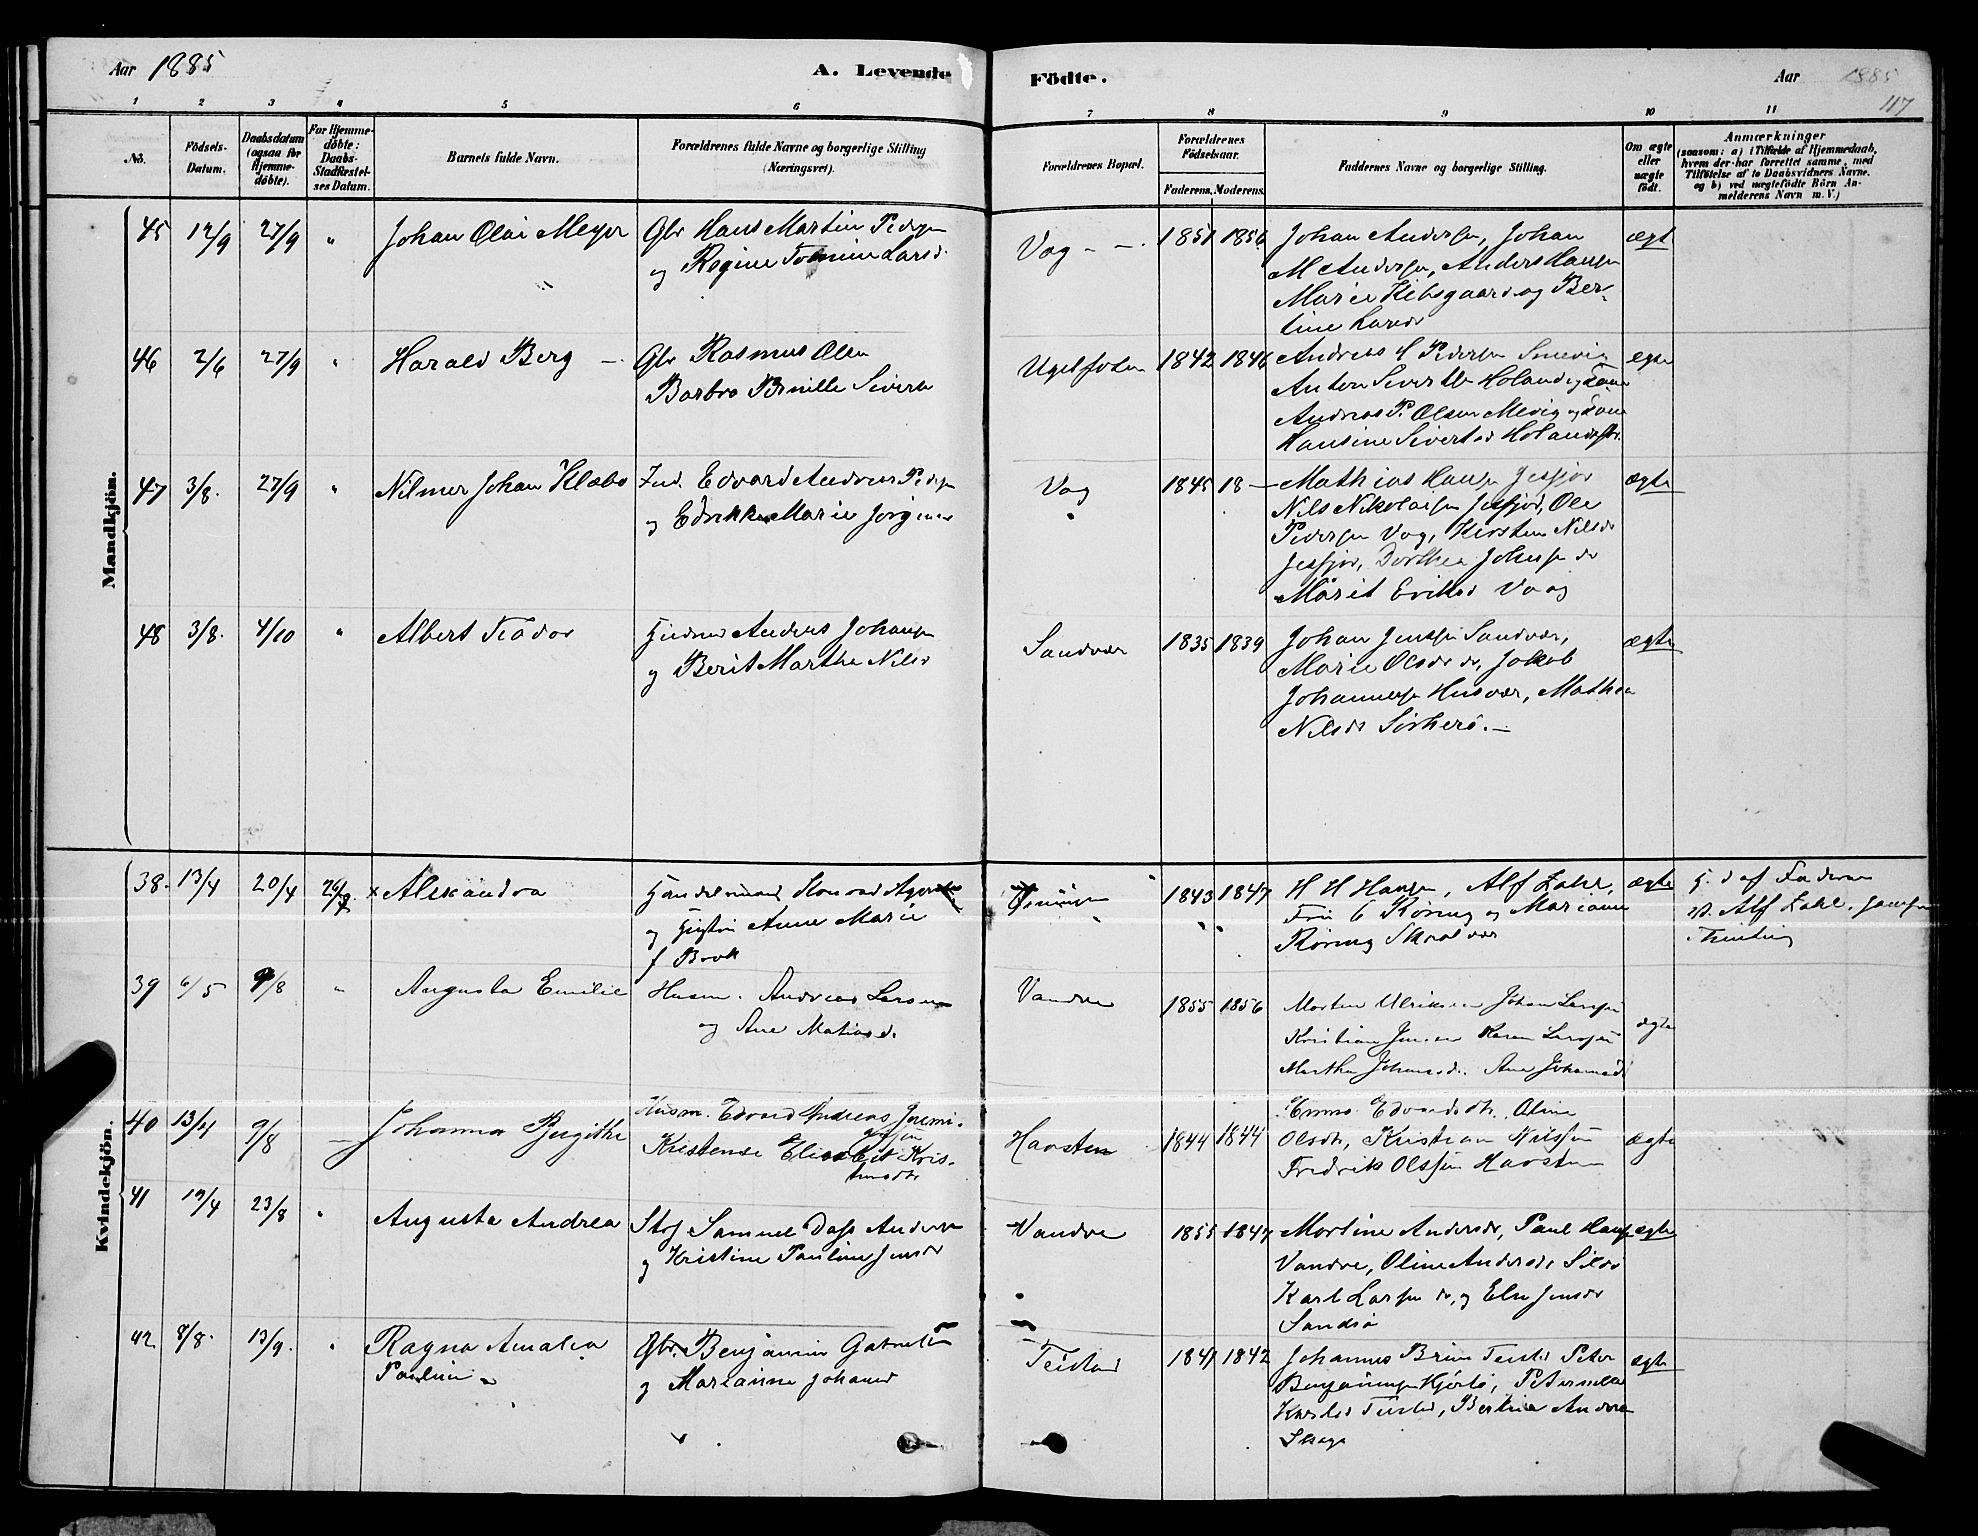 Aar 1885
A. Levende
Fødte.
Aar 1885
117
1 2 3 4 5 6 7 8 9 10 11
No.
Födsels-
Datum.
Daabsdatum
(ogsaa for
Hjemme-
döbte).
For Hjemme-
døbte:
Daabs-
Stadfæstel-
ses Datum.
Barnets fulde Navn.
Forældrenes fulde Navne og borgerlige Stilling
(Næringsvei).
Forældrenes Bopæl.
Forældrenes
Födselsaar.
Faderens. Moderens.
Faddernes Navne og borgerlige Stilling.
Om ægte
eller
uægte
födt.
Anmærkninger
(saasom: a) i Tilfælde af Hjemmedaab,
hvem der har forrettet samme, med
Tilføielse af to Daabsvidners Navne.
og b) ved uægtefödte Börn An-
melderens Navn m. V.)
Mandkjön.
45 12/9 27/9 " Johan Olai Meyer
Gbr Hans Martin Peders
og Regine Tomine Larsd.
Vag
1851 1856
Johan Andersen, Johan
M Andersen, Anders Hansen
Marie Kibsgaard og Ber-
tine Larsdr
ægt
46 2/6 27/9 " Harald Berg
Gbr Rasmus Olsen
Barbro Brnille Sivers
1842 1846
Andreas Pedersen
Anton Sivert Holand
Andreas P. Olsen Mevig
Hansine Sivertsd
ægte
47 3/8. 27/9 " Nilmer Johan Klæbo
Ind. Edvard Andreas Peders
og Edrikke Marie Jörgens
Vag
1845 18-
Mathias Hansen
Nils Nikolaisen, Ole
Pedersen Vag, Kirsten Nilsdr
Dorthea Johnsen do
Marit Eriksd Vaag
ægte
48 3/8. 4/10 " Albert Teodor
Anders Johansen
og Berit Martha Nilsd
Sandvær
1835 1839
Johan Jenssen Sandvær,
Marie Olsdr do, Jakob
Johannessen Husvær, Mathea
Nilsdr Sörherö.
ægte
Kvindekjön.
38. 13/4 20/4 × Alexandra
Handelsmand
og Hustru Anne Marie
f Brok
1843 1847
H H Hansen, Alf Zahl,
Fru C Röring og Mariane
Röring
ægte
H. d af Faderen
Alf Zahl,
39 6/5 9/8 " Augusta Emilie
Husm. Andreas Larsen
og Ane Matiasd.
Vandve
1855 1856
Morten Ulriksen Johan Larsen
Kristian Jensen Karen Larsen
Martha Johansd. Ane Johansd
ægte
40 13/4 9/8 Johanna Birgithe
Husm. Edvard Andreas Jeremi-
assen
Kristense Elisabet Kris-
tensdr
Havsten
1844 1844
Emma Edvardsdtr, Oline
Olsdtr, Kristian Nilssen
Fredrik Olssen Havsten
ægte
41 19/4 23/8 " Augusta Andrea
Samuel Dass Anders
og Kristine Pauline Jensdr
Vandve
1855 1847
Martine Andersdr, Paul Hans
Vandve, Oline Andersdr
Karl Larsen do, og Elen Jensdr
Sandsö
ægte
42 8/8. 13/9. " Ragna Amalia
Pauline
Gbr. Benjamin Gabriels
og Marianne Johansd
Teistad
1841 1842
Johannes Teistd Peter
Benjaminsen, Peternella
Karlsd Teistd, Andrea
ægte